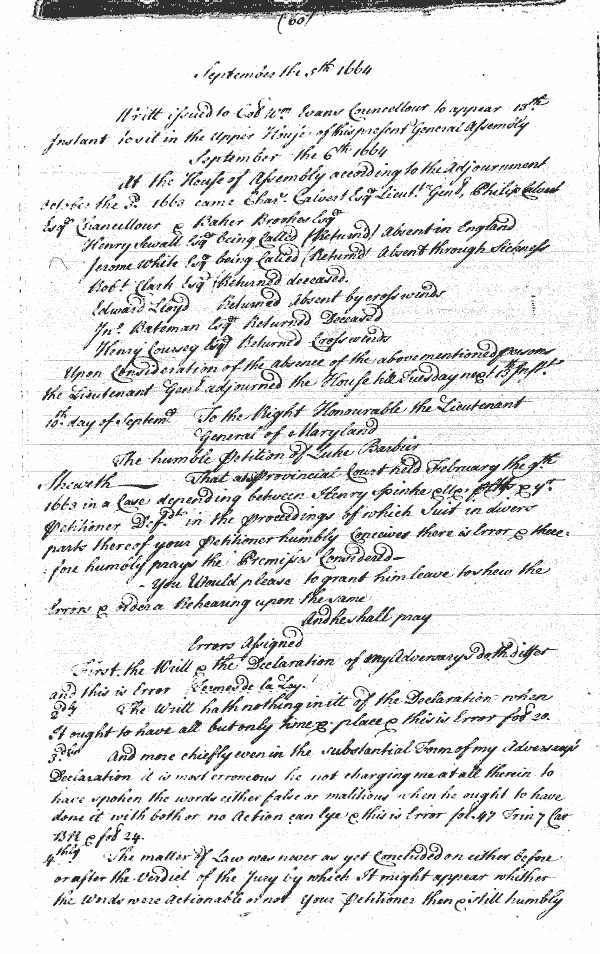 (60)
September the 5th 1664
Writt issued to Col Wm Evans Councellour to appear 13th
Instant to sit in the Upper House of this present General Assembly
September the 6th 1664
At the House of Assembly according to the Adjournment
October the 3d 1663 came Char. Calvert Esqr Lieutt Genl, Philip Calvert
Esqr Chancellour & Baker Brookes Esqr
Henry Sewall Esqr being Called (Returnd) Absent in England
Jerome White Esqr being Called (Returnd) Absent through Sickness
Robt Clark Esqr Returned deceased.
Edward Lloyd Returned Absent by cross winds
Jno. Bateman Esqr Returned Deceased
Henry Coursey Esqr Returned Cross winds
Upon Consideration of the absence of the abovementioned persons
the Lieutenant Genl adjourned the House till Tuesday next 13th Instt.
10th. day of Septemr To the Right Honourable the Lieutenant
General of Maryland
The humble Petition of Luke Barbier
Sheweth That at a Provincial Court held February the 9th
1663 in a Case depending between Henry Spinke & yr
Petitioner Defdt in the Proceedings of which Suit in divers
parts thereof your Petitioner humbly Conceives there is Error & there=
=fore humbly prays the Premises Considered
You Would please to grant him leave to shew the
Errors & order a Rehearing upon the same
And he shall pray
Errors Assigned
First. the Writt & the Declaration of my Adversary's doth differ
and this is Error (Termes de la Ley.
2dly The Writt hath nothing in itt of the Declaration when
It ought to have all but only time & place & this is Error fol 20.
3dly And more chiefly even in the substantial Form of my Adversary's
Declaration it is most erroneous he not charging me at all therein to
have spoken the words either false or malitious when he ought to have
done it with both or no Action can lye & this is Error fol. 47 Trin 7 Car
& fol 24.
4thly The matter of Law was never as yet Concluded on either before
or after the Verdict of the Jury by which It might appear whither
the Words were Actionable or not Your Petitioner then & still humbly